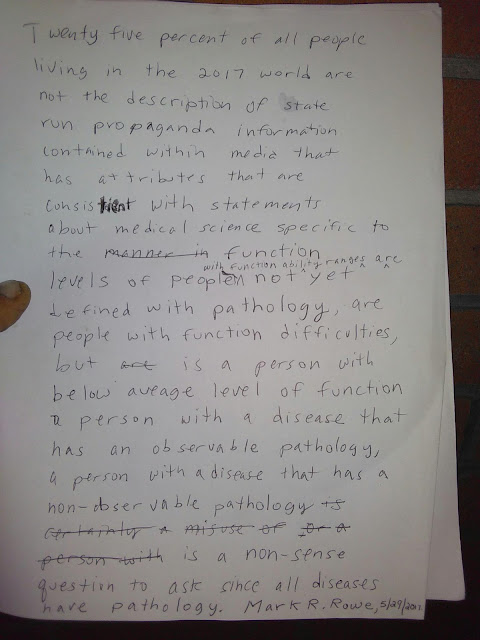 Twenty five percent of all people
living in the 2017 world are
not the description of state
run propaganda information
contained within media that
has attributes that are
consistient with statements
about medical science specific to
the manner in function
with function ability ranges are
levels of people not yet
defined with pathology, are
people with function difficulties,
but are is a person with
below aveage level of function
a person with a disease that
has an observable pathology,
a person with a disease that has a
non-observable pathology is
certainly a misuse of or a
person with is a non-sense
question to ask since all diseases
have pathology. Mark R. Rowe, 5/29/2017.